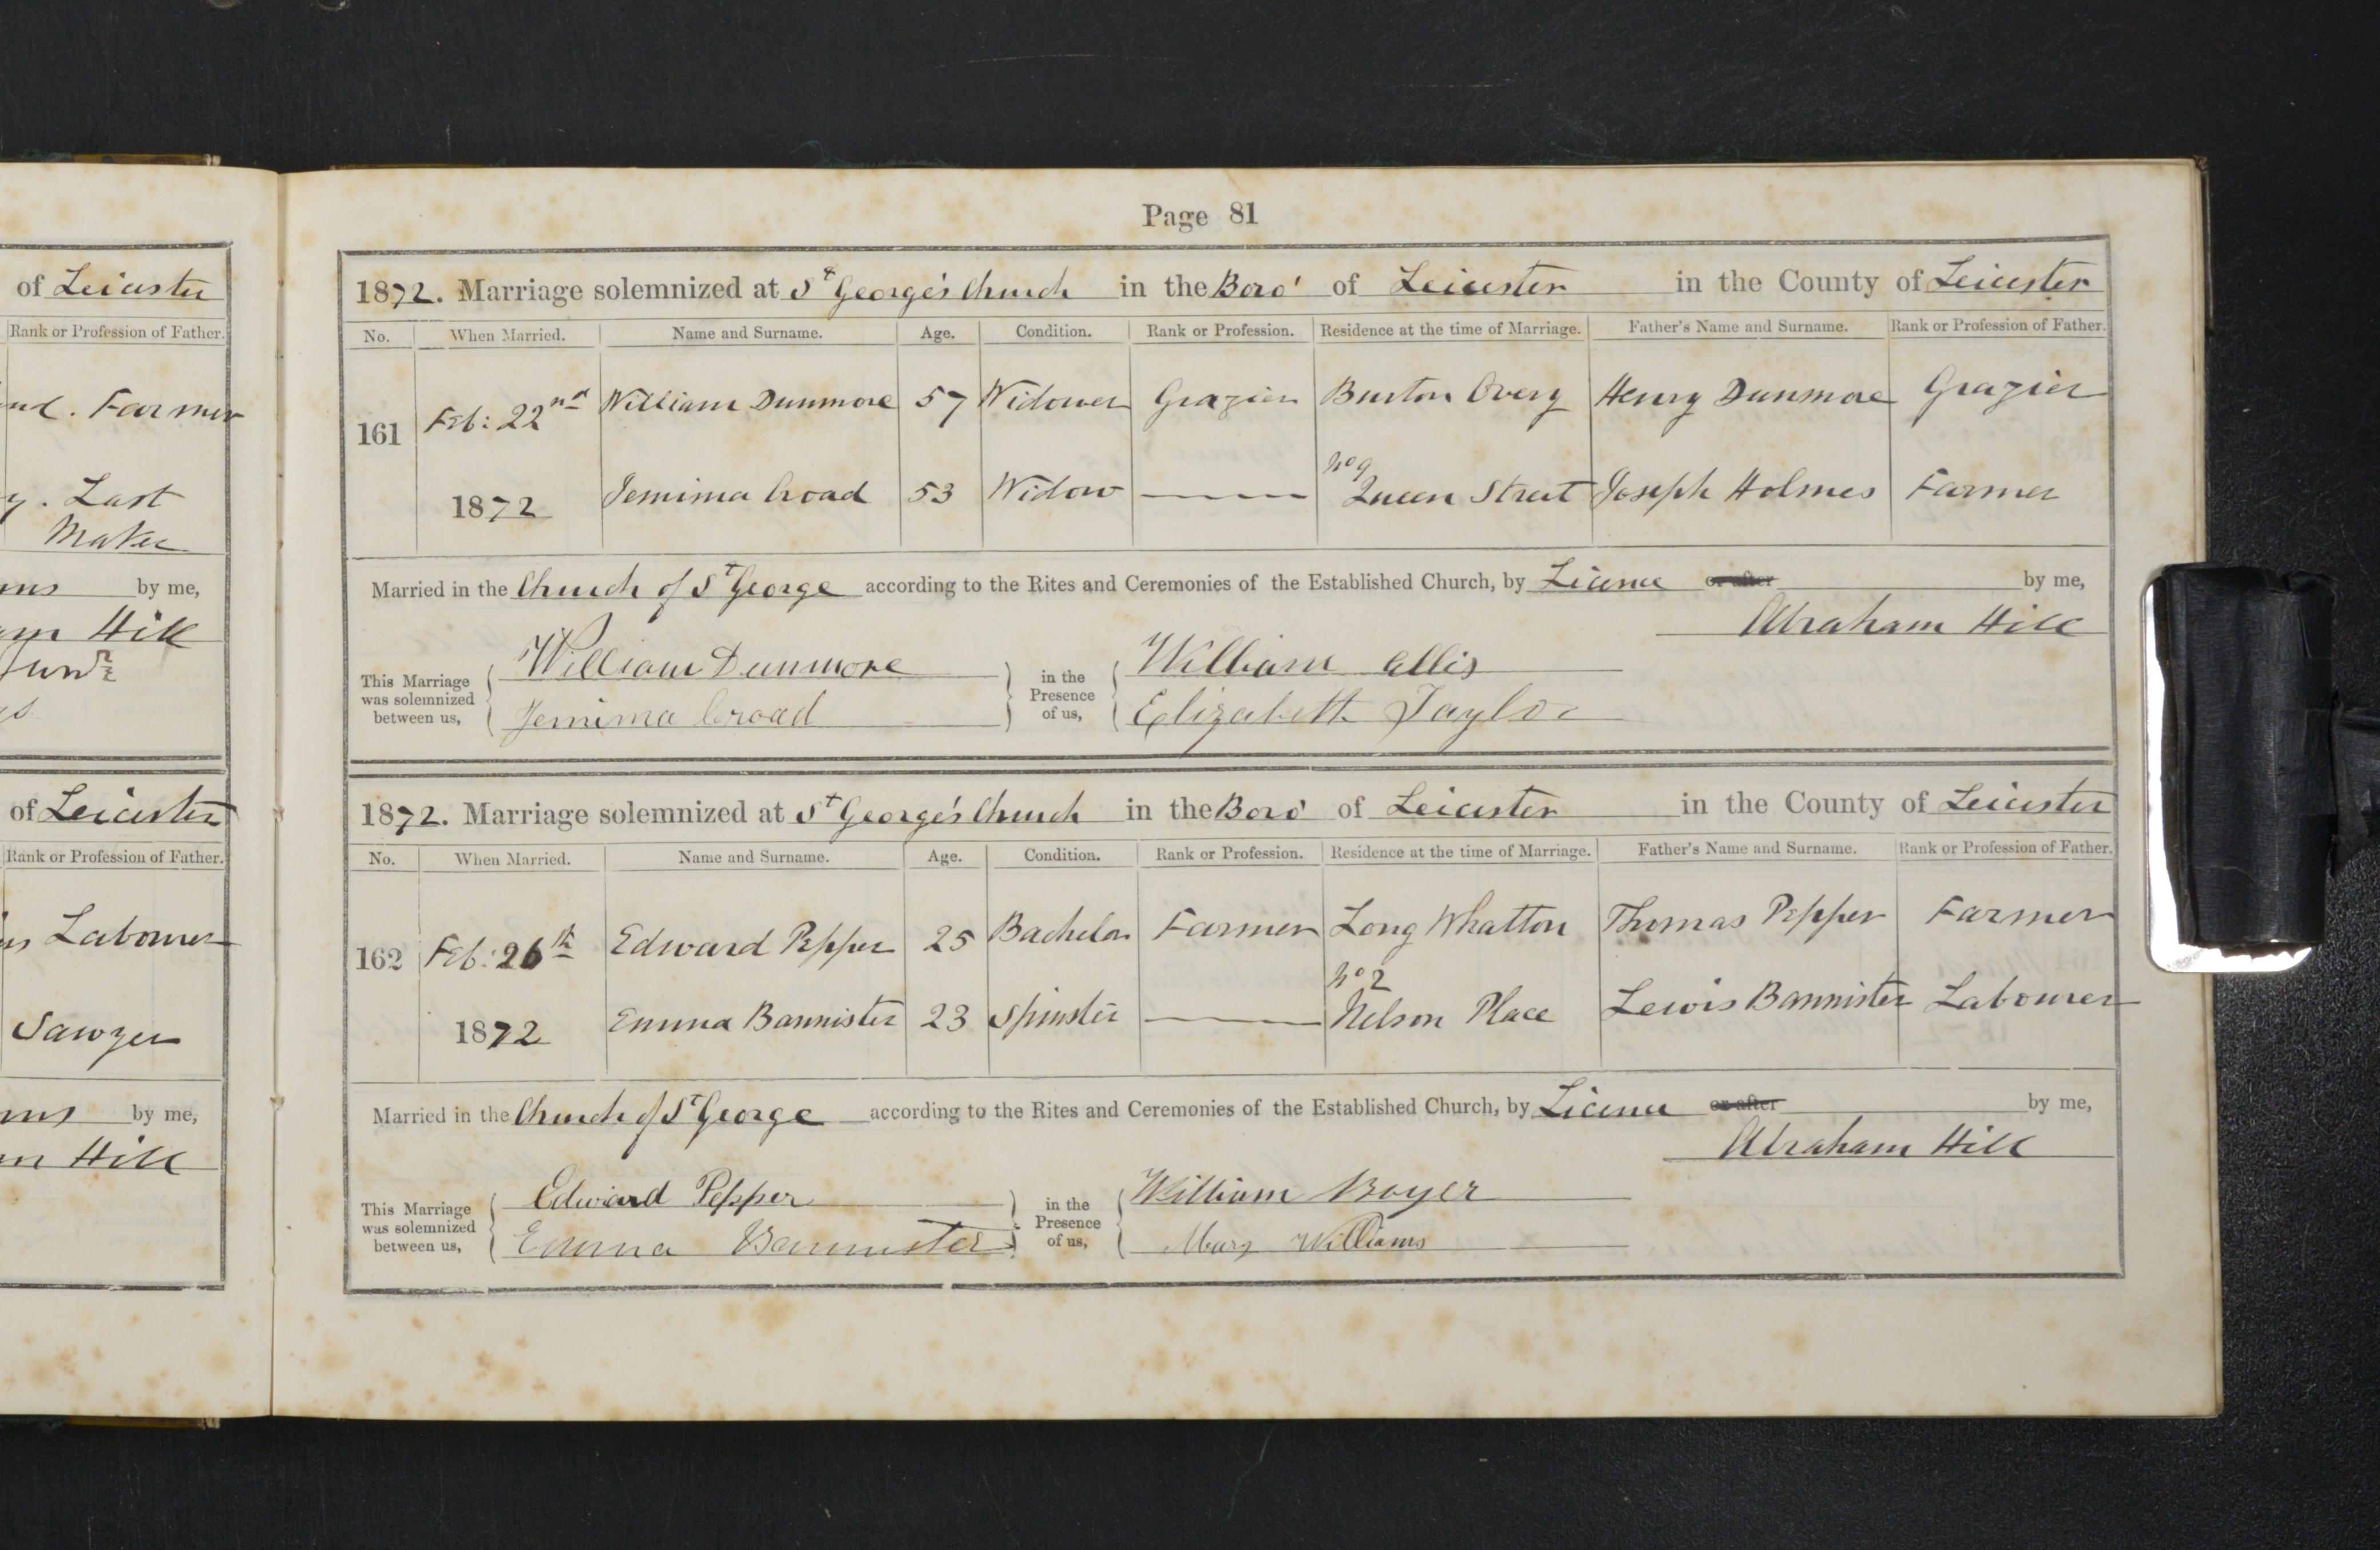 of Leicester
Rank or Profession of Father.
Farmer
Last
Maker
by me,
Hill
of Leicester
Rank or Profession of Father.
Labourer
Sawyer
by me,
Hill
Page 81
1872. Marriage solemnized at St George's Church in the Boro' of Leicester in the County of Leicester
No. When Married. Name and Surname. Age. Condition. Rank or Profession. Residence at the time of Marriage. Father's Name and Surname. Rank or Profession of Father.
161 Feb: 22nd William Dunmore 57 Widower Grazier Burton Overy Henry Dunmore Grazier
No 9
1872 Jemima Croad 53 Widow Queen Street Joseph Holmes Farmer
Married in the Church of St George according to the Rites and Ceremonies of the Established Church, by Licence or after by me,
Abraham Hill
This Marriage was solemnized between us, William Dunmore in the Presence of us, William Ellis
Jemima Croad Elizabeth Taylor
1872. Marriage solemnized at St George's Church in the Boro' of Leicester in the County of Leicester
No. When Married. Name and Surname. Age. Condition. Rank or Profession. Residence at the time of Marriage. Father's Name and Surname. Rank or Profession of Father.
162 Feb: 26th Edward Pepper 25 Bachelor Farmer Long Whatton Thomas Pepper Farmer
No 2
1872 Emma Bannister 23 Spinster Nelson Place Lewis Bannister Labourer
Married in the Church of St George according to the Rites and Ceremonies of the Established Church, by Licence or after by me,
Abraham Hill
This Marriage was solemnized between us, Edward Pepper in the Presence of us, William Boyer
Emma Bannister Mary Williams